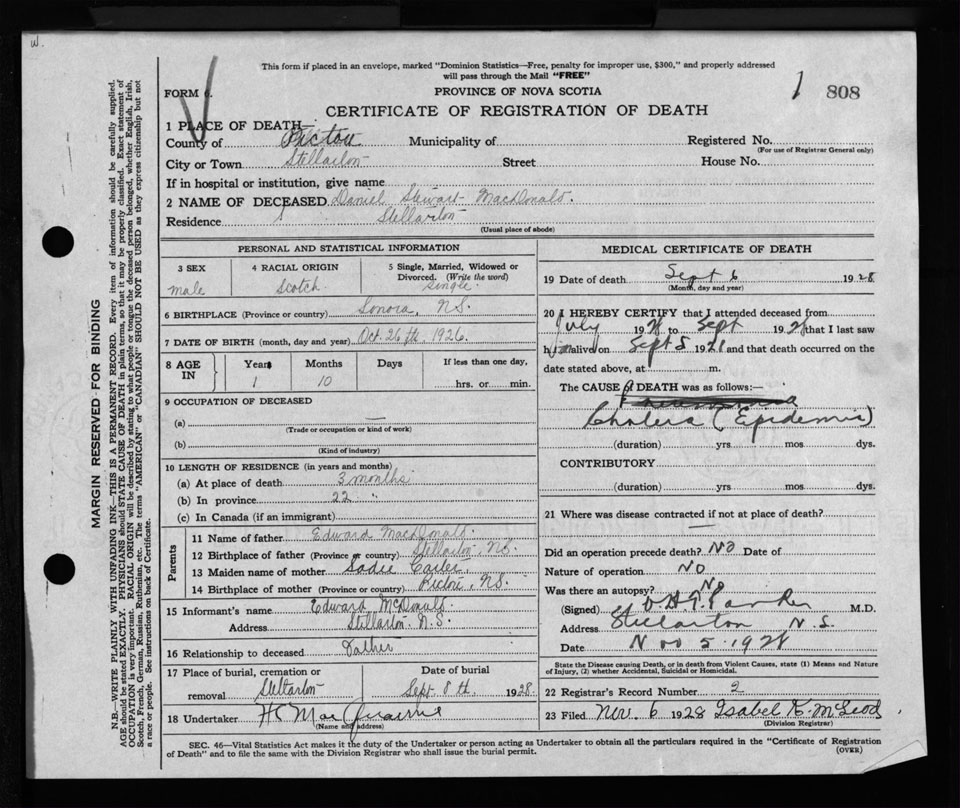 W.
This form if placed in an envelope, marked "Dominion Statistics—Free, penalty for improper use, $300," and properly addressed
will pass through the Mail "FREE"
FORM 6.
PROVINCE OF NOVA SCOTIA
1 808
CERTIFICATE OF REGISTRATION OF DEATH
1 PLACE OF DEATH—
County of Pictou Municipality of Registered No.
(For use of Registrar General only)
City or Town Stellarton Street House No.
If in hospital or institution, give name
2 NAME OF DECEASED Daniel Stewart MacDonald.
Residence Stellarton
(Usual place of abode)
PERSONAL AND STATISTICAL INFORMATION
3 SEX 4 RACIAL ORIGIN 5 Single, Married, Widowed or
Divorced. (Write the word)
male Scotch Single.
6 BIRTHPLACE (Province or country) Sonora, N.S.
7 DATE OF BIRTH (month, day and year) Oct. 26th, 1926.
8 AGE IN Years Months Days If less than one day,
1 10 hrs. or min.
9 OCCUPATION OF DECEASED
(a) —
(Trade or occupation or kind of work)
(b)
(Kind of industry)
10 LENGTH OF RESIDENCE (in years and months)
(a) At place of death 3 months
(b) In province 22 "
(c) In Canada (if an immigrant)
Parents
11 Name of father Edward MacDonald.
12 Birthplace of father (Province or country) Stellarton, N.S.
13 Maiden name of mother Sadie
14 Birthplace of mother (Province or country) N.S.
15 Informant's name Edward McDonald.
Address Stellarton. N.S.
16 Relationship to deceased Father
17 Place of burial, cremation or Date of burial
removal Stellarton Sept. 8th. 1928.
18 Undertaker H
(Name and address)
MEDICAL CERTIFICATE OF DEATH
19 Date of death Sept 6 1928
(Month, day and year)
20 I HEREBY CERTIFY that I attended deceased from
July 1928 to Sept 1928 that I last saw
h alive on Sept 5 1928 and that death occurred on the
date stated above, at m.
The CAUSE OF DEATH was as follows:—
Cholera (Epidemic)
(duration) yrs mos dys.
CONTRIBUTORY
(duration) yrs. mos. dys.
21 Where was disease contracted if not at place of death?
—
Did an operation precede death? No Date of
Nature of operation No
Was there an autopsy? No
(Signed) Parker M.D.
Address Stellarton N.S.
Date Nov 5 - 1928
State the Disease causing Death, or in death from Violent Causes, state (1) Means and Nature
of Injury, (2) whether Accidental, Suicidal or Homicidal.
22 Registrar's Record Number 2
23 Filed Nov. 6 1928 Isabel K. McLeod,
(Division Registrar)
SEC. 46—Vital Statistics Act makes it the duty of the Undertaker or person acting as Undertaker to obtain all the particulars required in the "Certificate of Registration
of Death" and to file the same with the Division Registrar who shall issue the burial permit.
(OVER)
MARGIN RESERVED FOR BINDING
N.B.—WRITE PLAINLY WITH UNFADING INK—THIS IS A PERMANENT RECORD. Every item of information should be carefully supplied.
AGE should be stated EXACTLY. PHYSICIANS should STATE CAUSE OF DEATH in plain terms, so that it may be properly classified. Exact statement of
OCCUPATION is very important. RACIAL ORIGIN will be described by stating to what people or tongue the deceased person belonged, whether English, Irish,
Scotch, French, German, Russian, Ruthenian, etc. The terms "AMERICAN" or "CANADIAN" SHOULD NOT BE USED as they express citizenship but not
a race or people. See instructions on back of Certificate.